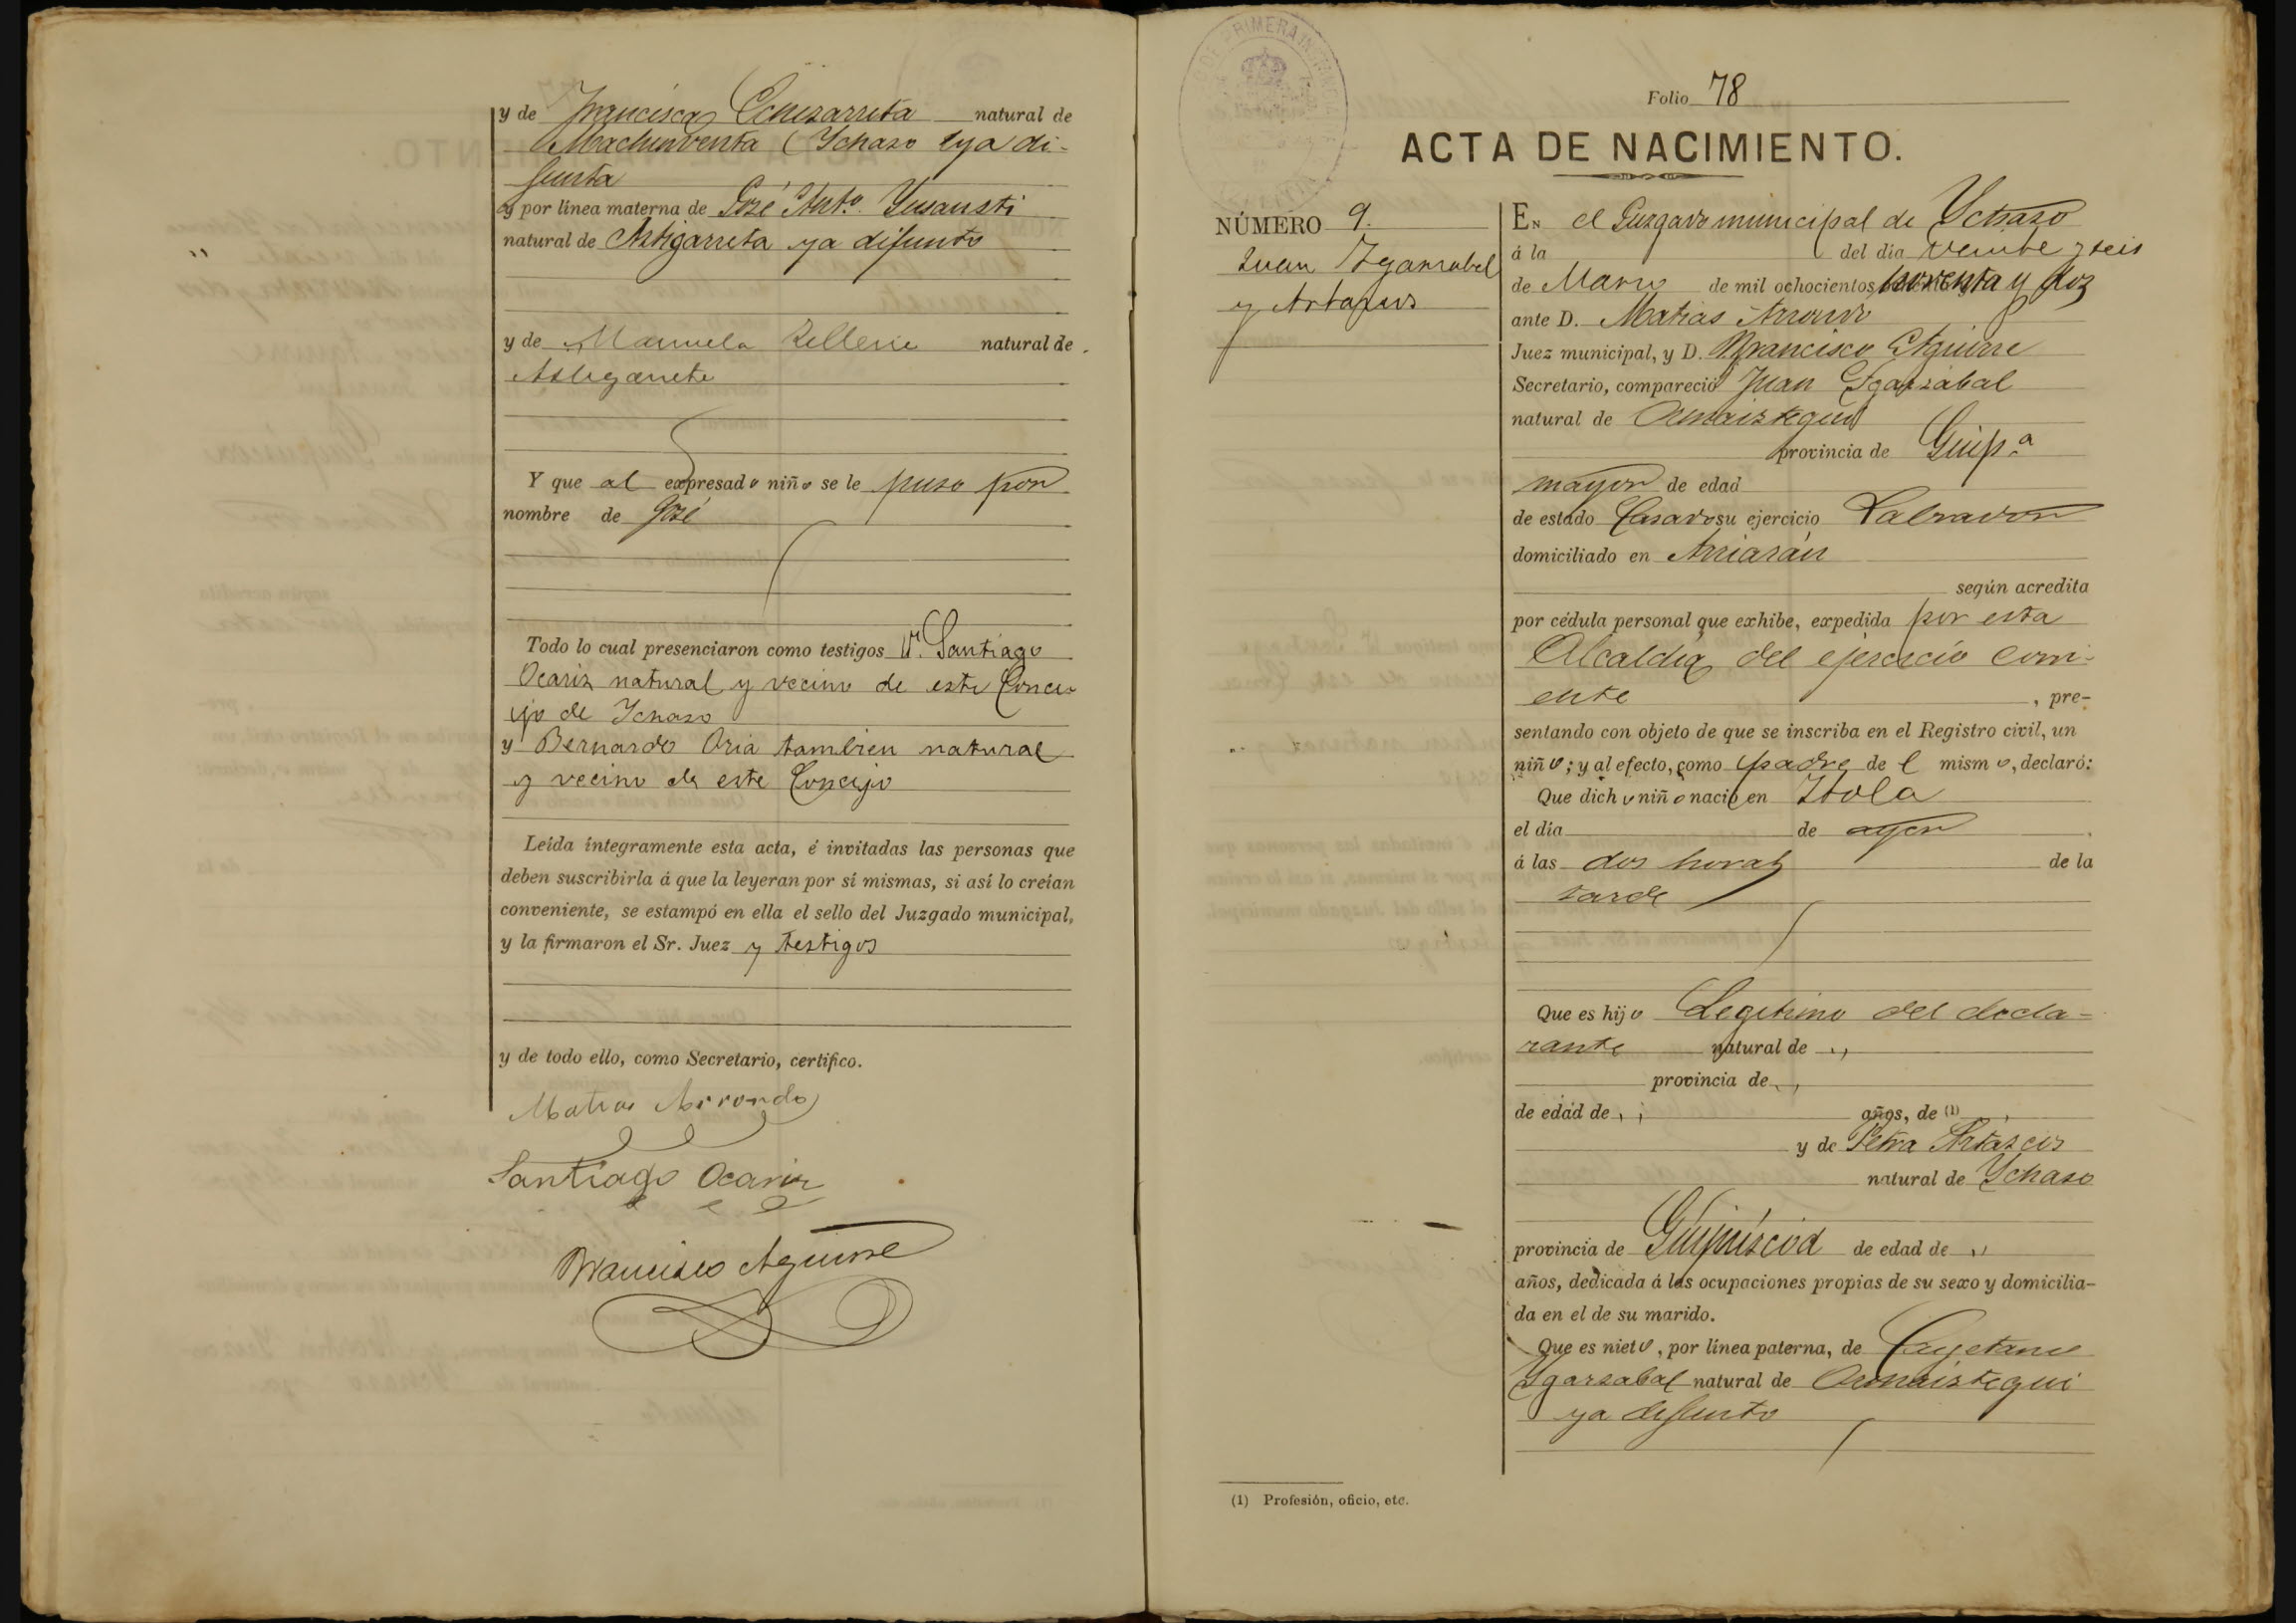 y de Francisca Echezarreta natural de
Machinventa (Ychaso) ya di-
funta
y por línea materna de José Anto. Ynsausti
natural de Astigarreta ya difunto
y de Manuela Tellerie natural de
Astigarreta
Y que al expresado niño se le puso por
nombre de José
Todo lo cual presenciaron como testigos Santiago
Ocariz natural y vecino de este Conce-
jo de Ychaso
y Bernardo Oria tambien natural
y vecino de este Concejo
Leída íntegramente esta acta, é invitadas las personas que
deben suscribirla á que la leyeran por sí mismas, si así lo creían
conveniente, se estampó en ella el sello del Juzgado municipal,
y la firmaron el Sr. Juez y testigos
y de todo ello, como Secretario, certifico.
Matias Arrondo
Santiago Ocariz
Francisco Aguirre
Folio 78
ACTA DE NACIMIENTO.
NÚMERO 9.
Juan Ygarzabal
y Artazcos
En el Juzgado municipal de Ychaso
á la del día veinte y seis
de Marzo de mil ochocientos noventa y dos
ante D. Matias Arrondo
Juez municipal, y D. Francisco Aguirre
Secretario, compareció Juan Ygarzabal
natural de Ormaiztegui
provincia de Guip.a
mayor de edad
de estado Casado su ejercicio Labrador
domiciliado en Arriarán
según acredita
por cédula personal que exhibe, expedida por esta
Alcaldia del ejercicio corri-
ente, pre-
sentando con objeto de que se inscriba en el Registro civil, un
niño; y al efecto, como padre del mismo, declaró:
Que dicho niño nació en Itola
el día de ayer
á las dos horas de la
tarde
Que es hijo Legitimo del decla-
rante natural de ,,
provincia de ,,
de edad de ,, años, de (1) ,
y de Petra Artazcos
natural de Ychaso
provincia de Guipúscoa de edad de ,,
años, dedicada á las ocupaciones propias de su sexo y domicilia-
da en el de su marido.
Que es nieto, por línea paterna, de Cayetano
Ygarzabal natural de Ormaiztegui
ya difunto
(1) Profesión, oficio, etc.